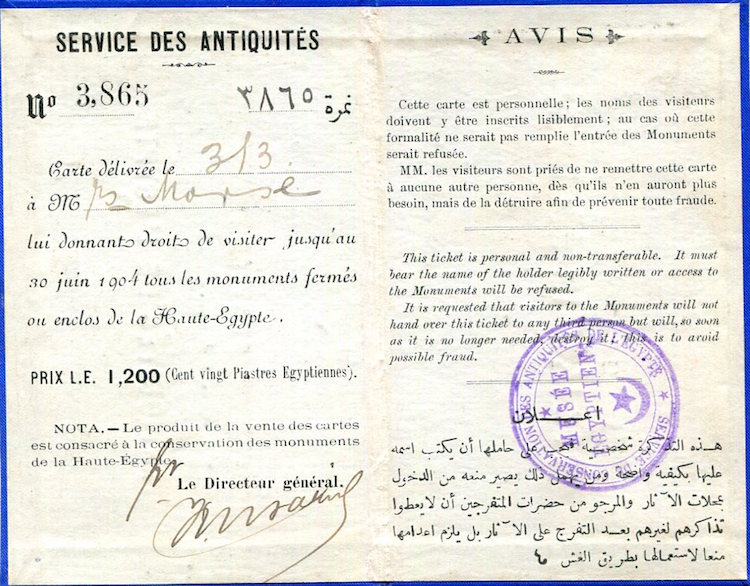 SERVICE DES ANTIQUITÉS
No 3,865 ٣٨٦٥ نمرة
Carte délivrée le 3/3.
à Mrs Morse
lui donnant droit de visiter jusqu'au
30 juin 1904 tous les monuments fermés
ou enclos de la Haute-Egypte.
PRIX L.E. 1,200 (Cent vingt Piastres Egyptiennes).
NOTA.—Le produit de la vente des cartes
est consacré à la conservation des monuments
de la Haute-Egypte.
Le Directeur général.
AVIS
Cette carte est personnelle; les noms des visiteurs
doivent y être inscrits lisiblement; au cas où cette
formalité ne serait pas remplie l'entrée des Monuments
serait refusée.
MM. les visiteurs sont priés de ne remettre cette carte
à aucune autre personne, dès qu'ils n'en auront plus
besoin, mais de la détruire afin de prévenir toute fraude.
This ticket is personal and non-transferable. It must
bear the name of the holder legibly written or access to
the Monuments will be refused.
It is requested that visitors to the Monuments will not
hand over this ticket to any third person but will, so soon
as it is no longer needed, destroy it; this is to avoid
possible fraud.
اعلان
هذه التذكرة شخصية فيجب على حاملها أن يكتب اسمه
عليها بكيفية واضحة ومن يهمل ذلك يصير منعه من الدخول
بمحلات الآثار والمرجو من حضرات المتفرجين أن لا يعطوا
تذاكرهم لغيرهم بعد التفرج على الآثار بل يلزم اعدامها
منعا لاستعمالها بطريق الغش
SERVICE DE CONSERVATION DES ANTIQUITÉS DE L'EGYPTE
MUSÉE
EGYPTIEN